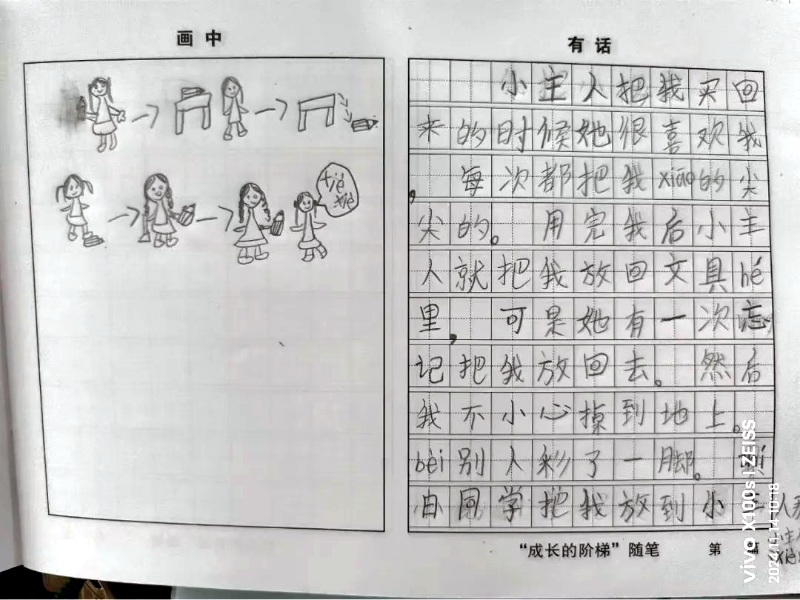 画中
xiè xie
有话
小主人把我买回
来的时候她很喜欢我
，每次都把我xiāo的尖
尖的。用完我后小主
人就把我放回文具hé
里，可是她有一次忘
记把我放回去。然后
我不小心掉到地上。
bèi别人彩了一脚。
由同学把我放到小主人
"成长的阶梯"随笔 第 篇
vivo X100s | ZEISS
2024.11.14 10:18